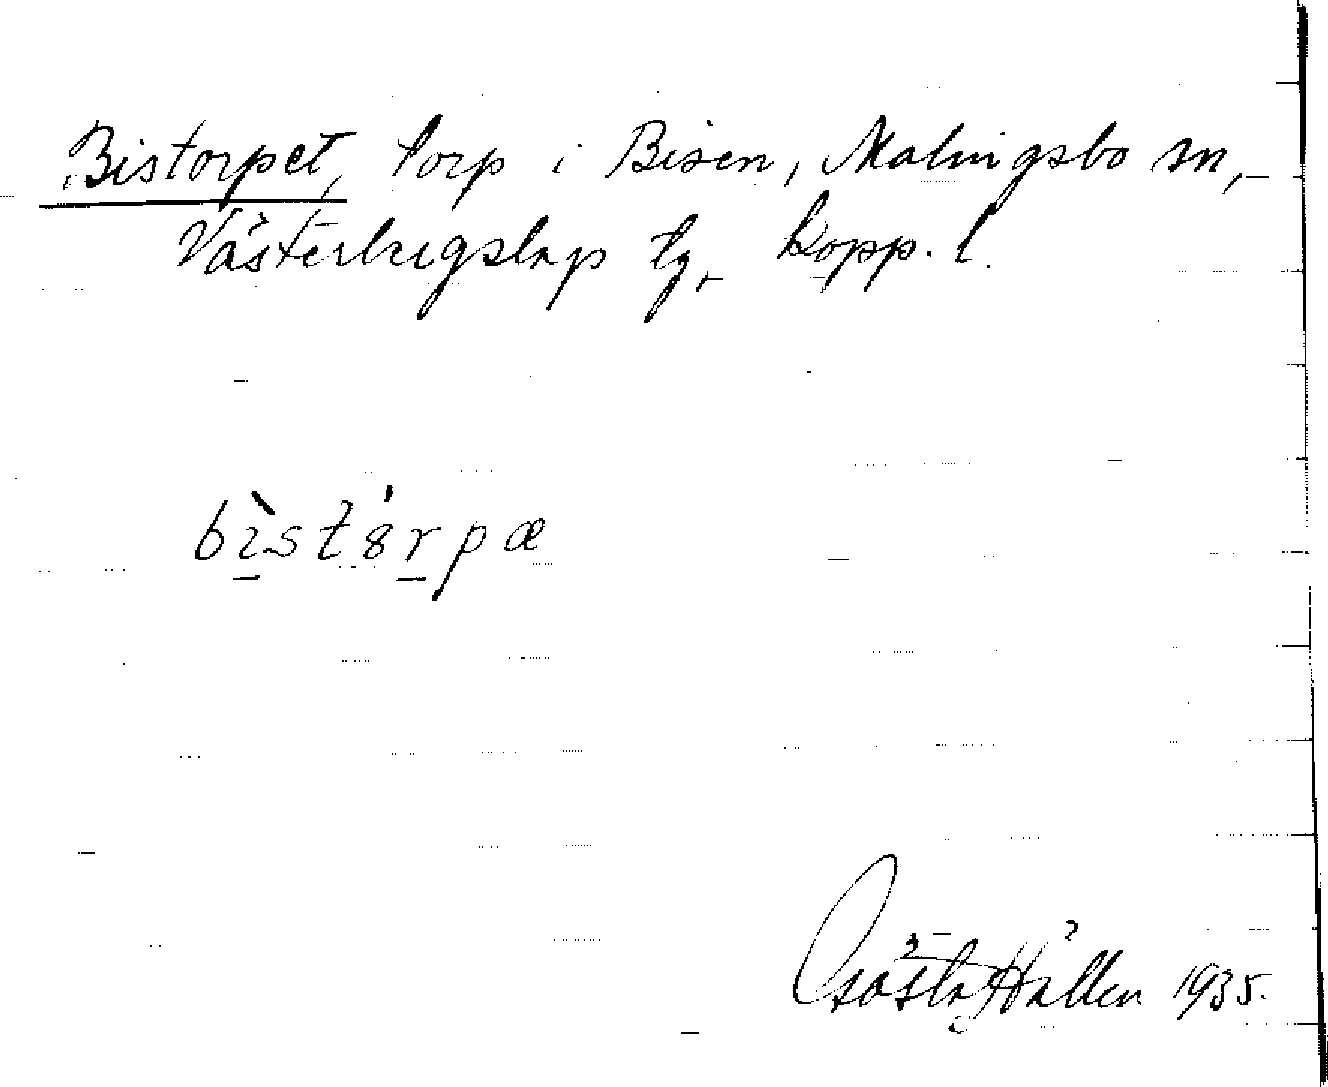 Bistorpet, torp i Bisen, Malingsbo sn,
Västerbergslags tg, Kopp. l.
bìstȣ́rpæ
Gösta Hallén 1935.